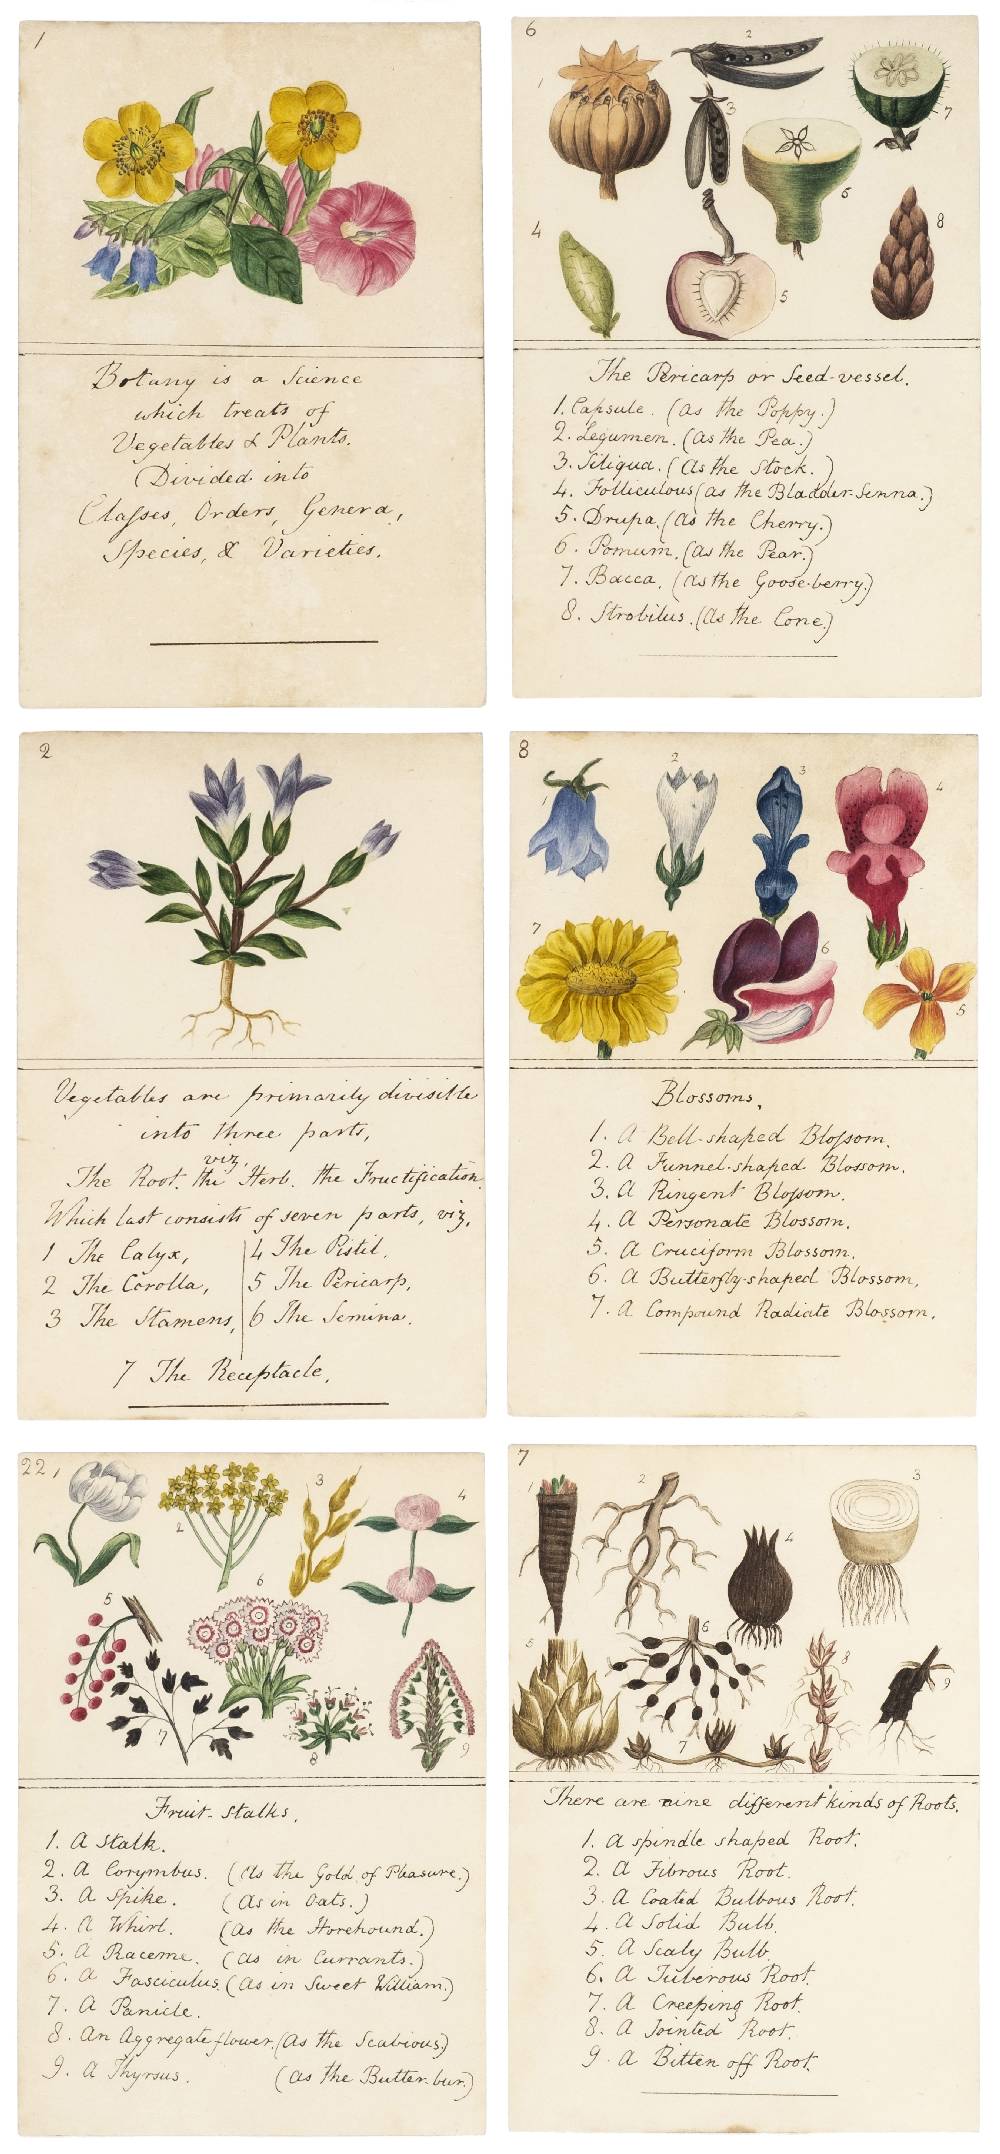 1
Botany is a Science
which treats of
Vegetables & Plants.
Divided into
Classes, Orders, Genera,
Species, & Varieties.
6
1
2
3
7
6
4
8
5
The Pericarp or Seed-vessel.
1. Capsule. (as the Poppy.)
2. Legumen. (as the Pea.)
3. Siliqua. (as the Stock.)
4. Folliculous (as the Bladder-Senna.)
5. Drupa. (as the Cherry.)
6. Pomum. (as the Pear.)
7. Bacca. (as the Goose-berry.)
8. Strobilus. (as the Cone.)
2
Vegetables are primarily divisible
into three parts,
viz,
The Root. the Herb. the Fructification.
Which last consists of seven parts, viz,
1 The Calyx, 4 The Pistil,
2 The Corolla, 5 The Pericarp,
3 The Stamens, 6 The Semina.
7 The Receptacle.
8
1
2
3
4
7
6
5
Blossoms.
1. A Bell-shaped Blossom.
2. A Funnel-shaped Blossom.
3. A Ringent Blossom.
4. A Personate Blossom.
5. A Cruciform Blossom.
6. A Butterfly-shaped Blossom.
7. A Compound Radiate Blossom.
22,
2
3
4
5
6
7
8
9
Fruit-Stalks.
1. A Stalk.
2. A Corymbus. (as the Gold of Pleasure.)
3. A Spike. (as in Oats.)
4. A Whirl. (as the Horehound.)
5. A Raceme. (as in Currants.)
6. A Fasciculus. (as in Sweet William.)
7. A Panicle.
8. An Aggregate flower. (as the Scabious.)
9. A Thyrsus. (as the Butter-bur.)
7
1
2
3
4
5
6
7
8
9
There are nine different kinds of Roots.
1. A spindle shaped Root.
2. A Fibrous Root.
3. A Coated Bulbous Root.
4. A Solid Bulb.
5. A Scaly Bulb.
6. A Tuberous Root.
7. A Creeping Root.
8. A Jointed Root.
9. A Bitten off Root.